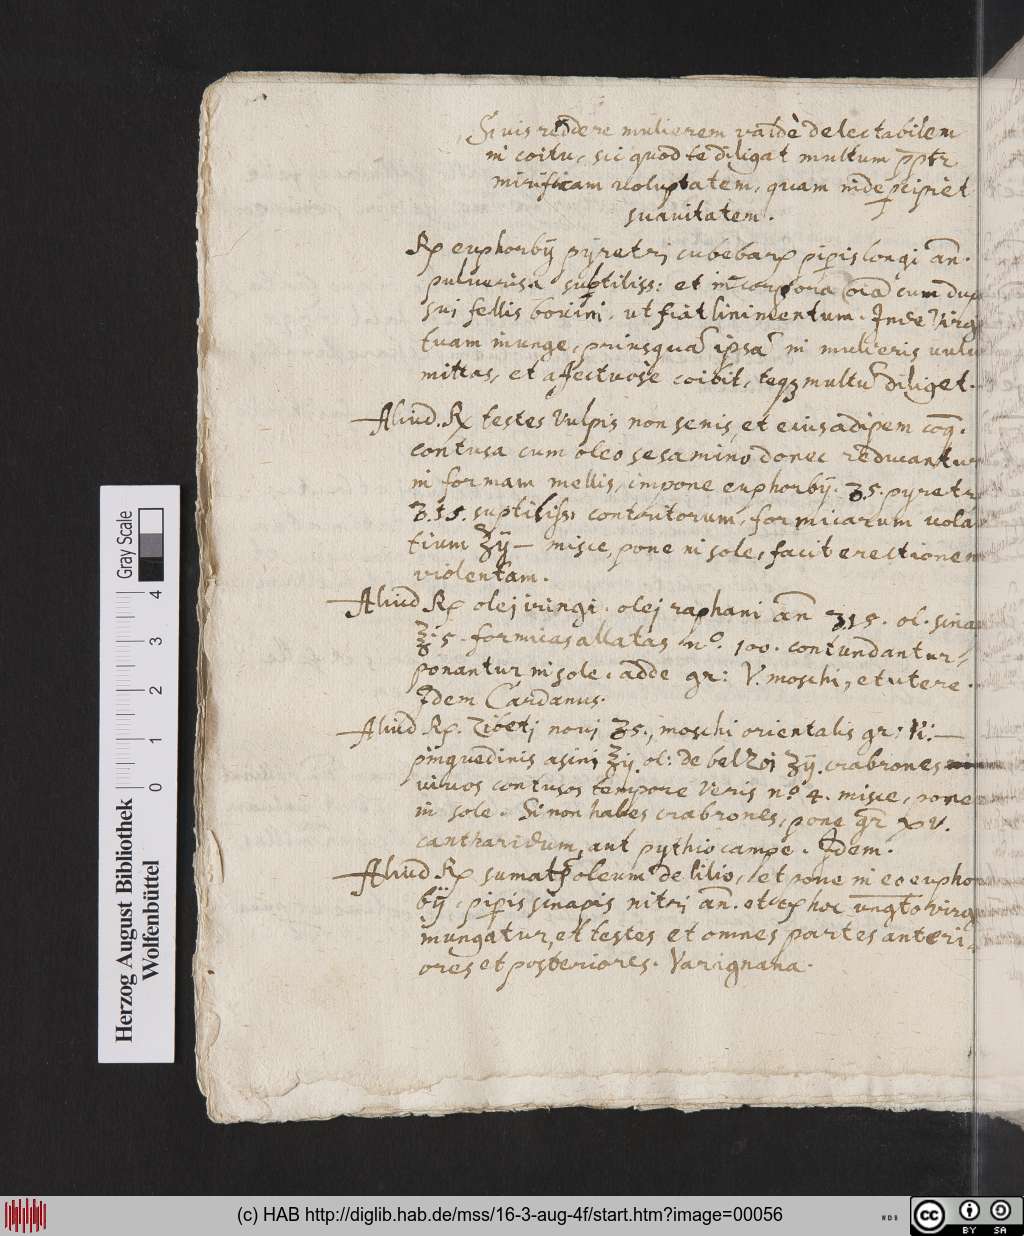 Si vis reddere mulierem valdè delectabilem
in coitu, sic quod te diligat multum pptr
mirificam voluptatem, quam inde pcipiet
suavitatem.
Rp euphorbij pyretri cubebarum pipis longi an.
pulverisa subtiliss: et incorpora oia cum
sui fellis bovini, ut fiat linimentum. Inde virg
tuam inunge, priusqua ipsa in mulieris vulv
mittas, et affectuose coibit, teq3 multu diliget.
Aliud. Rp testes Vulpis non senis, et eius adipem coq.
contusa cum oleo sesamino donec reducantur
in formam mellis, impone euphorbij. ʒ.s. pyretr
ʒ.is. suptiliss. contritorum, formicarum vola
tium ʒij — misce, pone in sole, facit erectionem
violentam.
Aliud Rp olej iringi. olej raphani an ʒis. ol. sina
ʒ.s. formicas allatas nº. 100. contundantur,
ponantur in sole. adde gr: V. moschi, et utere.
Idem Cardanus.
Aliud Rp. Zibeti novi ʒs., moschi orientalis gr: ii. —
pinguedinis asini ʒij. ol: de belzoi ʒij. crabrones
vivos contusos tempore Veris nº 4. misce, pone
in sole. Si non habes crabrones, pone gr xv.
cantharidum, aut pythiocampe. Idem.
Aliud Rp sumat oleum de lilio, et pone in eo eupho
bij, pipis sinapis nitri an. et hoc ungto virg
inungatur, et testes et omnes partes anteri-
ores et posteriores. Varignana.
Herzog August Bibliothek
Wolfenbüttel
Gray Scale
0 1 2 3 4
(c) HAB http://diglib.hab.de/mss/16-3-aug-4f/start.htm?image=00056
cc BY SA